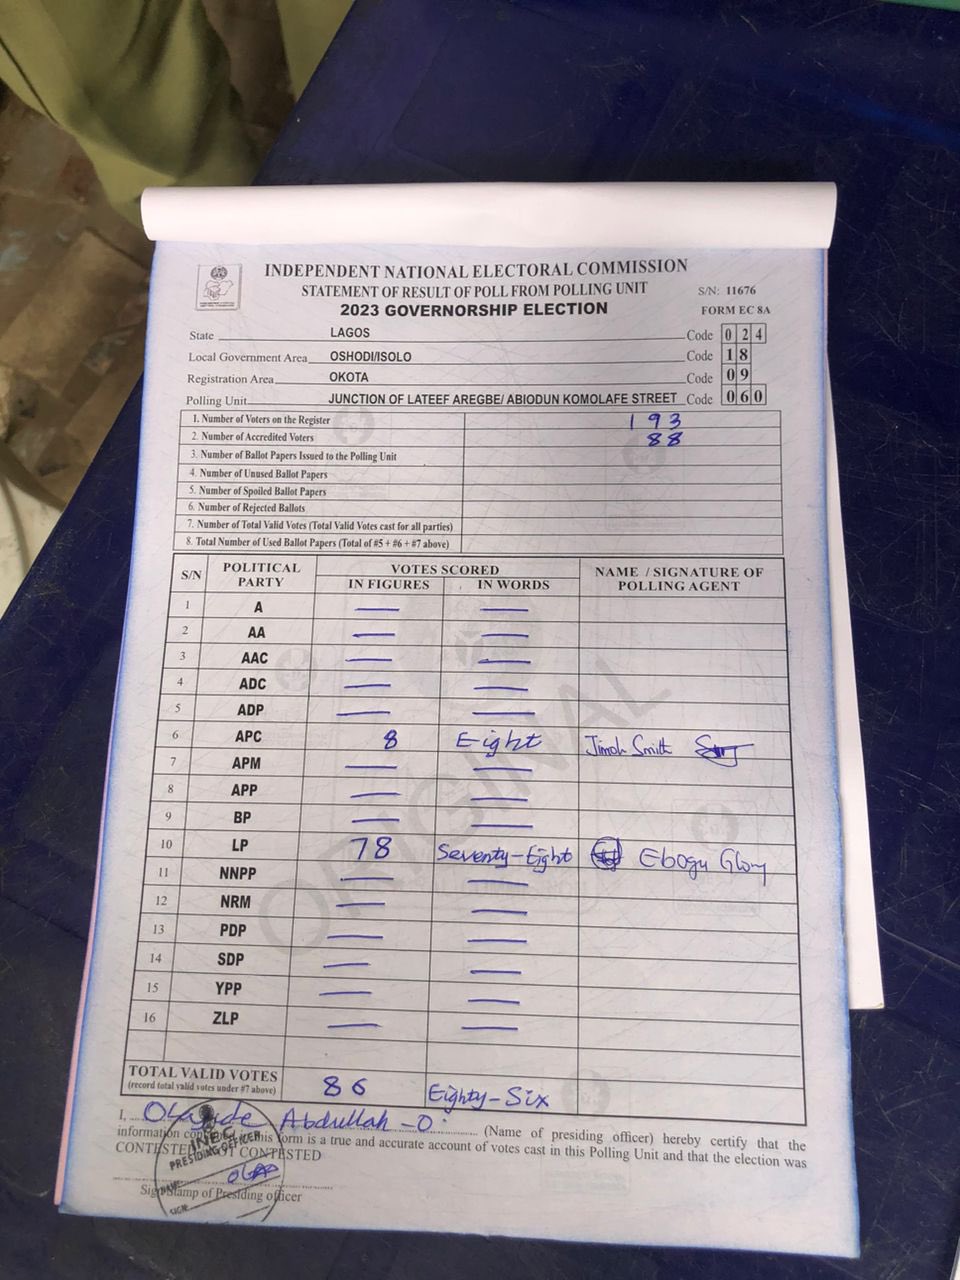 INDEPENDENT NATIONAL ELECTORAL COMMISSION
STATEMENT OF RESULT OF POLL FROM POLLING UNIT
S/N: 11676
2023 GOVERNORSHIP ELECTION
FORM EC 8A
State LAGOS Code 0 2 4
Local Government Area OSHODI/ISOLO Code 1 8
Registration Area OKOTA Code 0 9
Polling Unit JUNCTION OF LATEEF AREGBE/ ABIODUN KOMOLAFE STREET Code 0 6 0
1. Number of Voters on the Register 193
2. Number of Accredited Voters 88
3. Number of Ballot Papers Issued to the Polling Unit
4. Number of Unused Ballot Papers
5. Number of Spoiled Ballot Papers
6. Number of Rejected Ballots
7. Number of Total Valid Votes (Total Valid Votes cast for all parties)
8. Total Number of Used Ballot Papers (Total of #5 + #6 + #7 above)
S/N POLITICAL PARTY VOTES SCORED NAME / SIGNATURE OF POLLING AGENT
IN FIGURES IN WORDS
1 A — —
2 AA — —
3 AAC — —
4 ADC — —
5 ADP — —
6 APC 8 Eight Jimoh Smith
7 APM — —
8 APP — —
9 BP — —
10 LP 78 Seventy-Eight Ebogu Glory
11 NNPP — —
12 NRM — —
13 PDP — —
14 SDP — —
15 YPP — —
16 ZLP — —
ORIGINAL
TOTAL VALID VOTES 86 Eighty-Six
(record total valid votes under #7 above)
I, Abdullah -O. (Name of presiding officer) hereby certify that the
information this form is a true and accurate account of votes cast in this Polling Unit and that the election was
CONTESTED CONTESTED
INEC
PRESIDING OFFICER
NAME:
SIGN:
Sign/Stamp of Presiding officer